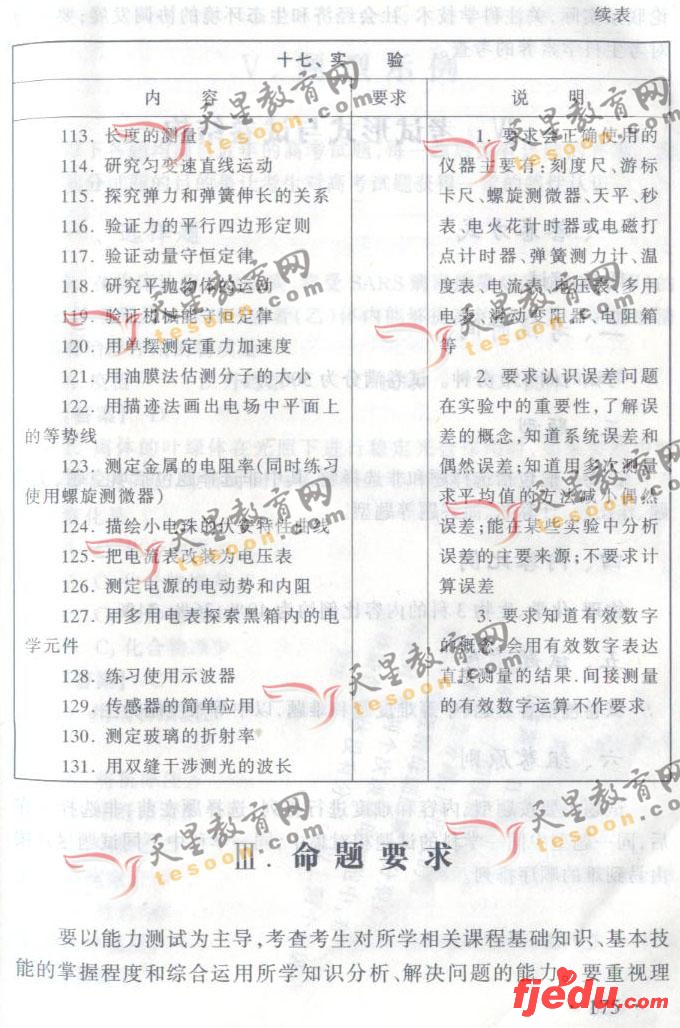 续表
十七、实 验
内 容 要求 说 明
113. 长度的测量
114. 研究匀变速直线运动
115. 探究弹力和弹簧伸长的关系
116. 验证力的平行四边形定则
117. 验证动量守恒定律
118. 研究平抛物体的运动
119. 验证机械能守恒定律
120. 用单摆测定重力加速度
121. 用油膜法估测分子的大小
122. 用描迹法画出电场中平面上
的等势线
123. 测定金属的电阻率(同时练习
使用螺旋测微器)
124. 描绘小电珠的伏安特性曲线
125. 把电流表改装为电压表
126. 测定电源的电动势和内阻
127. 用多用电表探索黑箱内的电
学元件
128. 练习使用示波器
129. 传感器的简单应用
130. 测定玻璃的折射率
131. 用双缝干涉测光的波长
1. 要求会正确使用的
仪器主要有:刻度尺、游标
卡尺、螺旋测微器、天平、秒
表、电火花计时器或电磁打
点计时器、弹簧测力计、温
度表、电流表、电压表、多用
电表、滑动变阻器、电阻箱
等
2. 要求认识误差问题
在实验中的重要性,了解误
差的概念,知道系统误差和
偶然误差;知道用多次测量
求平均值的方法减小偶然
误差;能在某些实验中分析
误差的主要来源;不要求计
算误差
3. 要求知道有效数字
的概念,会用有效数字表达
直接测量的结果.间接测量
的有效数字运算不作要求
Ⅲ. 命题要求
要以能力测试为主导,考查考生对所学相关课程基础知识、基本技
能的掌握程度和综合运用所学知识分析、解决问题的能力。要重视理
175
天星教育网
tesoon.com
fjedu.com